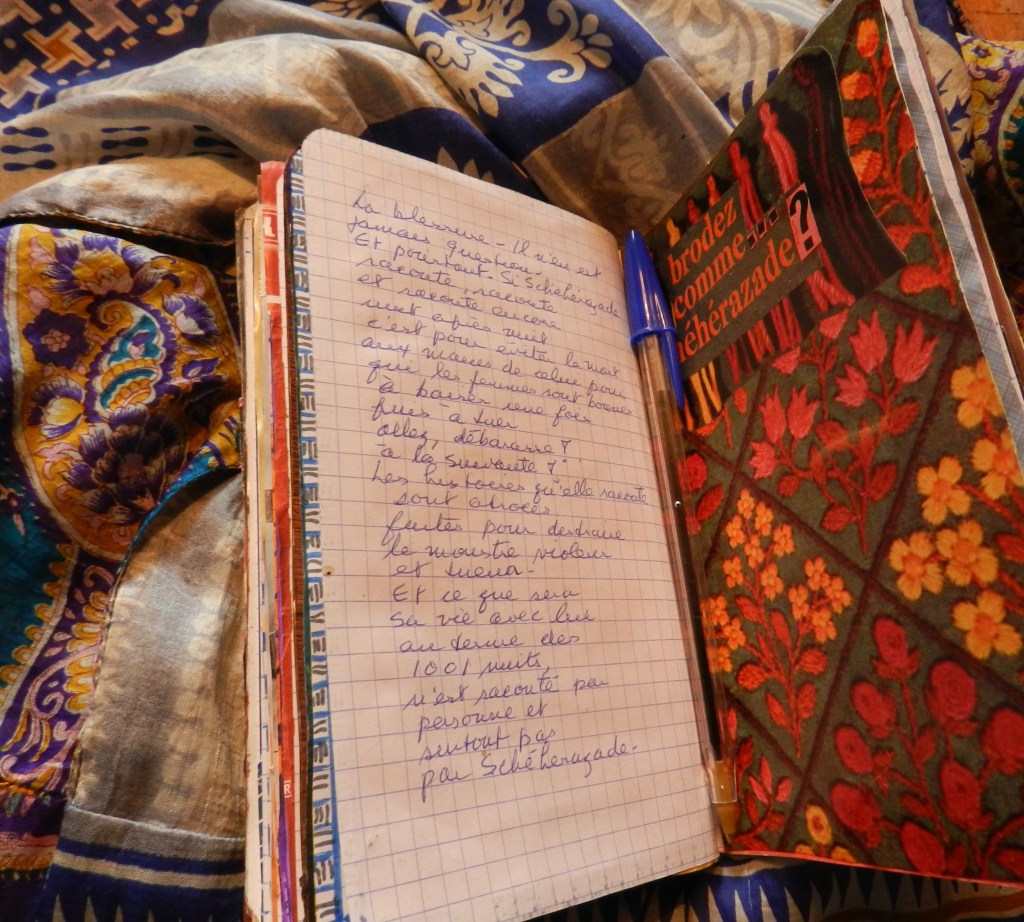 La blessure - Il n'en est
jamais question.
Et pourtant. Si Schéhérazade
raconte, raconte
et raconte encore
nuit après nuit
c'est pour éviter la mort
aux mains de celui pour
que les femmes sont bonnes
à baiser une fois
puis à tuer
Allez, débarasse ?
à la suivante ?
Les histoires qu'elle raconte
sont atroces
faites pour distraire
le monstre violeur
et tueur -
Et ce que sera
sa vie avec lui
au terme des
1001 nuits,
n'est raconté par
personne et
surtout pas
par Schéhérazade.
brodez
comme...
héhérazade?